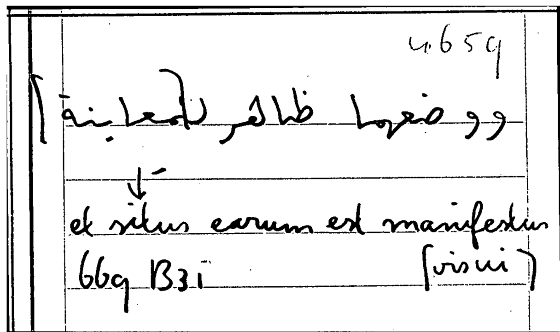 4.659
ووضعهما ظاهر [للمعاينة]
et situs earum est manifestus
66q B31 [visui]